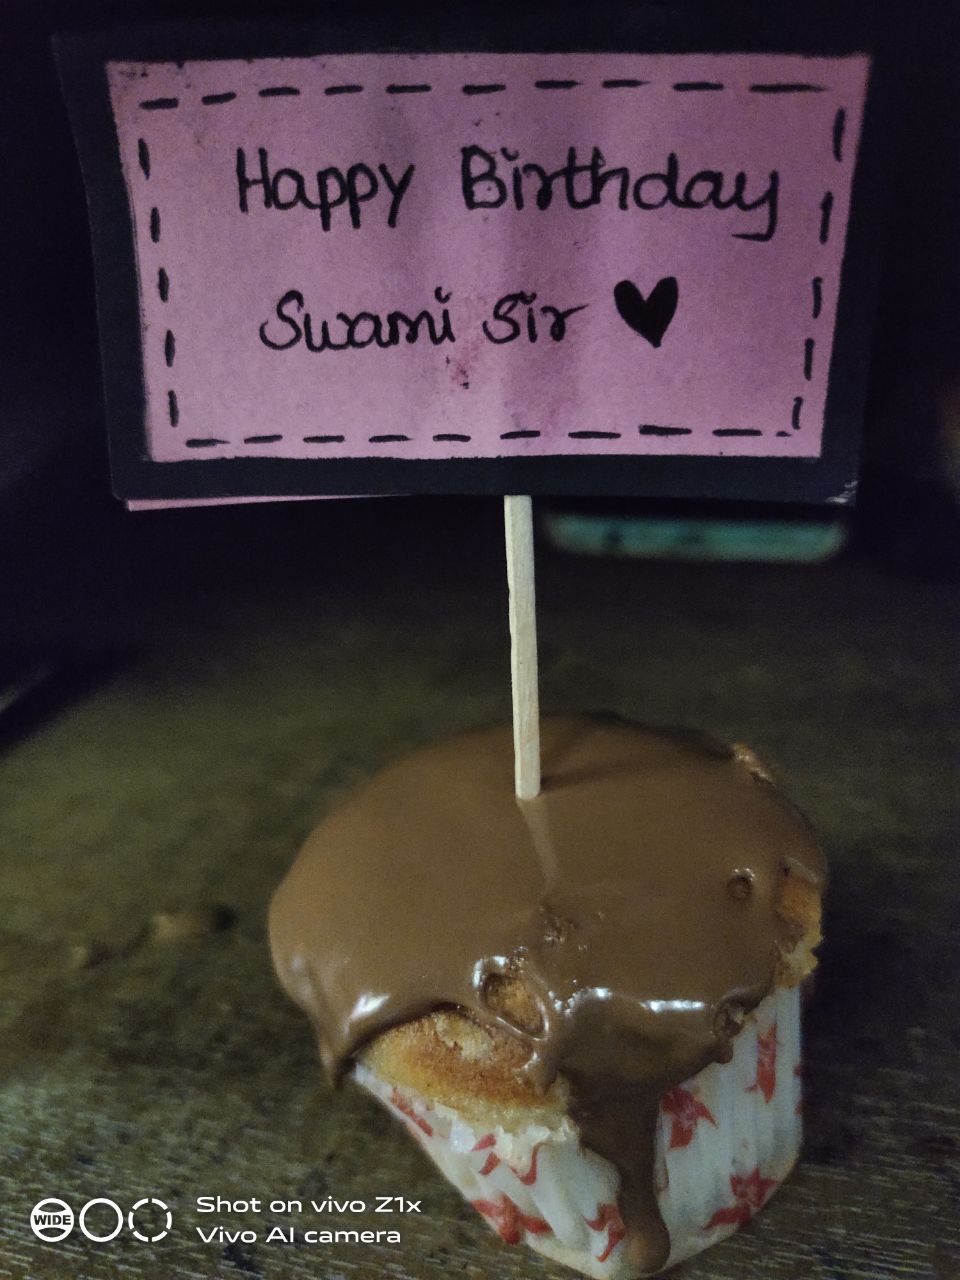 Happy Birthday
Swami Sir ♥
WIDE
Shot on vivo Z1x
Vivo AI camera